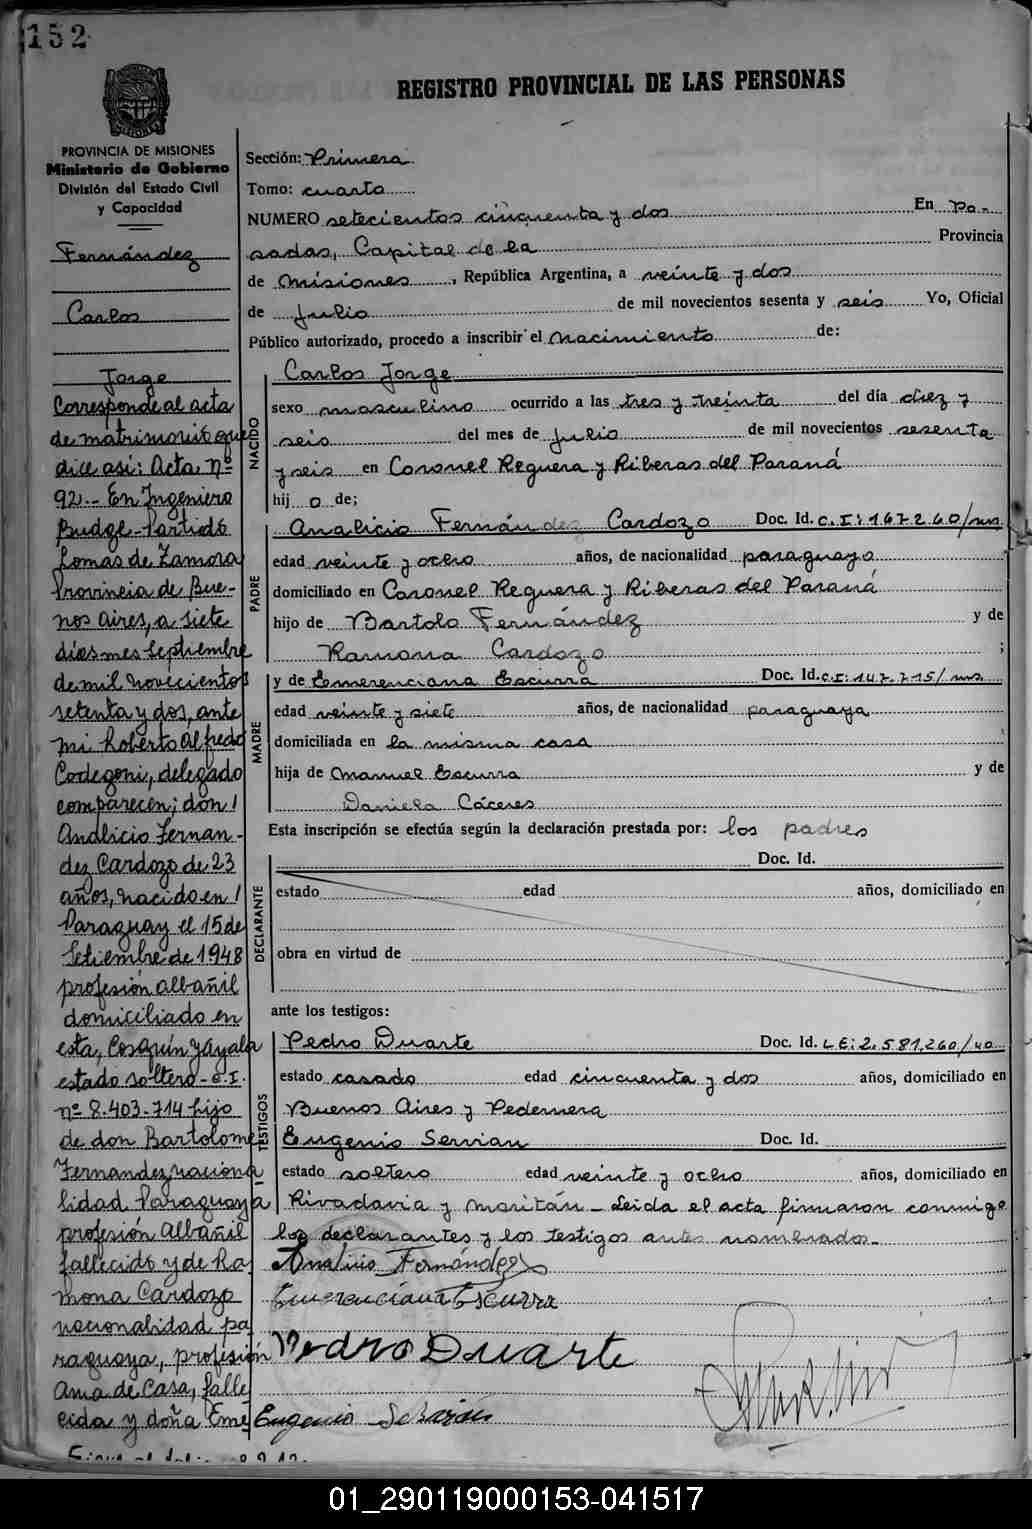 152
REGISTRO PROVINCIAL DE LAS PERSONAS
PROVINCIA DE MISIONES
Ministerio de Gobierno
División del Estado Civil
y Capacidad
Fernández
Carlos
Jorge
Corresponde al acta
de matrimonio que
dice así: Acta Nº
92.- En Ingeniero
Budge-Partido
Lomas de Zamora
Provincia de Bue-
nos Aires, a siete
días mes septiembre
de mil novecientos
setenta y dos, ante
mi Roberto Alfredo
Codegoni, delegado
comparecen; don
Analicio Fernan-
dez Cardozo de 23
años, nacido en
Paraguay el 15 de
Setiembre de 1948
profesión albañil
domiciliado en
esta, Cosquín y Ayala
estado soltero - C.I.
nº 8.403.714 hijo
de don Bartolome
Fernandez, naciona
lidad Paraguaya
profesión Albañil
fallecido y de Ra
mona Cardozo
nacionalidad pa
raguaya, profesión
Ama de Casa, falle
cida y doña Eme
Sección: Primera
Tomo: cuarto
NUMERO setecientos cincuenta y dos En Po-
sadas, Capital de la Provincia
de Misiones, República Argentina, a veinte y dos
de Julio de mil novecientos sesenta y seis Yo, Oficial
Público autorizado, procedo a inscribir el nacimiento de:
NACIDO
Carlos Jorge
sexo masculino ocurrido a las tres y treinta del día diez y
seis del mes de Julio de mil novecientos sesenta
y seis en Coronel Reguera y Riberas del Paraná
hij o de;
PADRE
Analicio Fernández Cardozo Doc. Id. C.I: 167260/ms
edad veinte y ocho años, de nacionalidad paraguayo
domiciliado en Coronel Reguera y Riberas del Paraná
hijo de Bartolo Fernández y de
Ramona Cardozo ;
MADRE
y de Emerenciana Escurra Doc. Id. C.I: 147.715/ms
edad veinte y siete años, de nacionalidad paraguaya
domiciliada en la misma casa
hija de Manuel Escurra y de
Daniela Cáceres
Esta inscripción se efectúa según la declaración prestada por: los padres
DECLARANTE
Doc. Id.
estado edad años, domiciliado en
obra en virtud de
ante los testigos:
TESTIGOS
Pedro Duarte Doc. Id. L.E: 2.581.260/40
estado casado edad cincuenta y dos años, domiciliado en
Buenos Aires y Pedernera
Eugenio Servian Doc. Id.
estado soltero edad veinte y ocho años, domiciliado en
Rivadavia y Moritán - Leida el acta firmaron conmigo
los declarantes y los testigos antes nombrados.-
Analicio Fernández
Emerenciana Escurra
Pedro Duarte
Eugenio
01_290119000153-041517